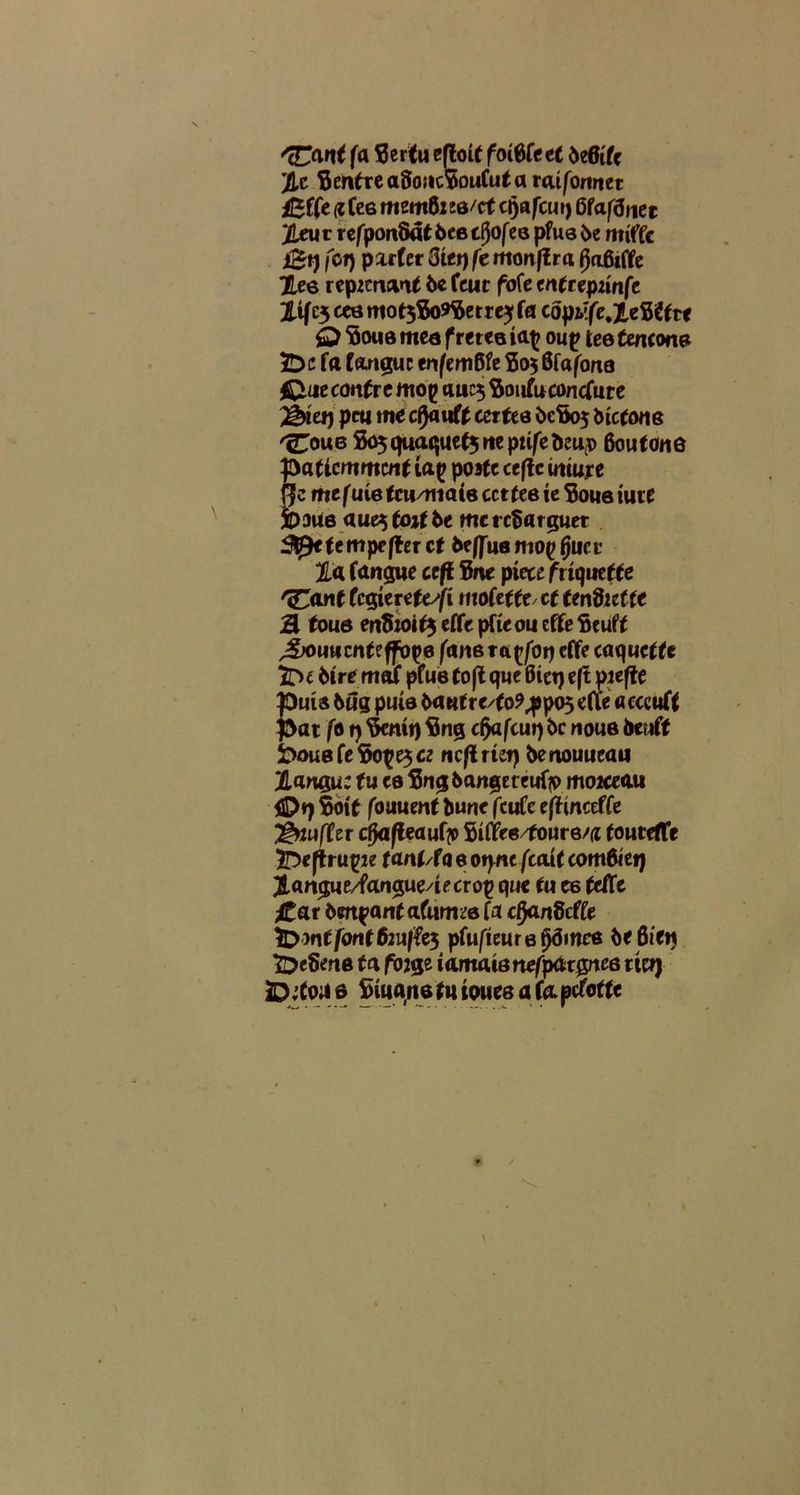 Tant sa vertu estoit foible et debile
Le ventre adonc voulut a raisonner
Elle & ses membres/et chascun blasõner
Leur respondãt des choses plus de mille
En son parler bien se monstra habille
Les reprenant de leur fole entreprinse
Lisez ces motz vo9 verrez sa cõprise. Le vẽtre
O vous mes freres iay ouy les tencons
De la langue ensemble voz blasons
Que contre moy auez voulu conclure
Bien peu me chault certes de voz dictons
Tous voz quaquetz ne prise deux boutons
Patiemment iay porte ceste iniure
Je me suis teu/mais certes ie vous iure
Vous auez tort de me redarguer
Me tempester et dessus moy huer
La langue cest vne piece friquette
Tant legierete/si molette/et tendrette
A tous endroitz elle plie ou elle veult
Souuenteffoys sans rayson elle caquette
De dire mal plus tost que bien est preste
Puis dũg puis dautre/to9 propos elle acceult
Par so n venin vng chascun de nous deult
Vous le voyez ce nest rien de nouueau
Langue tu es vng dangereulx morceau
On voit souuent dune seule estincelle
Brusler chasteaulx villes/tours/& tourelle
Destruyre tant/las on ne scait combien
Langue/langue/ie croy que tu es telle
Car denyant alumes la chandelle
Dont sont bruslez plusieurs hõmes de bien
Dedens ta forge iamais nespargnes rien
De tous viuans tu ioues a la pelotte